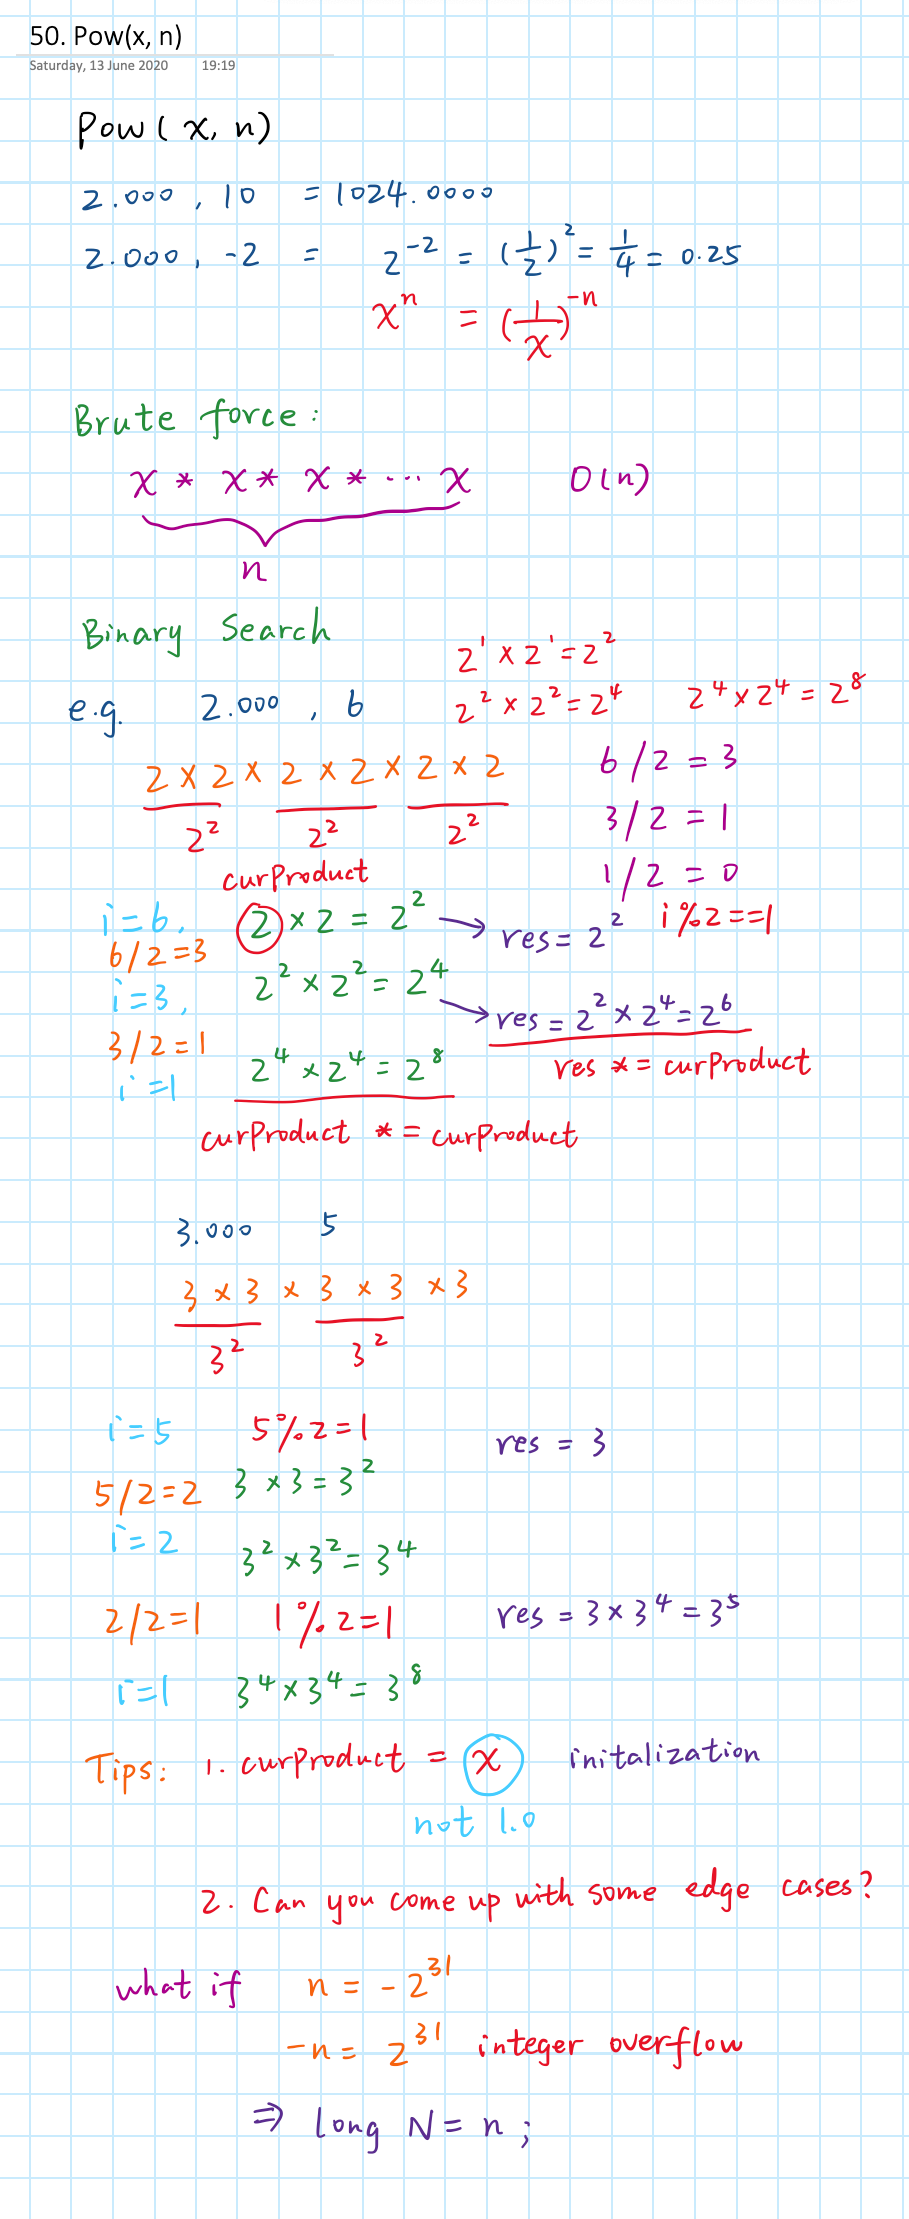 50. Pow(x, n)
Saturday, 13 June 2020 19:19
Pow ( x, n)
2.000 , 10 = 1024.0000
2.000 , -2 = 2⁻² = (1/2)² = 1/4 = 0.25
xⁿ = (1/x)⁻ⁿ
Brute force :
x * x * x * ... x O(n)
n
Binary Search
2¹ × 2¹ = 2²
e.g. 2.000 , 6 2² × 2² = 2⁴ 2⁴ × 2⁴ = 2⁸
2 × 2 × 2 × 2 × 2 × 2 6/2 = 3
2² 2² 2² 3/2 = 1
curProduct 1/2 = 0
i=6, 2 × 2 = 2² → res = 2² i%2==1
6/2=3
i=3, 2² × 2² = 2⁴ → res = 2² × 2⁴ = 2⁶
3/2=1 2⁴ × 2⁴ = 2⁸ res *= curProduct
i=1
curProduct *= curProduct
3.000 5
3 × 3 × 3 × 3 × 3
3² 3²
i=5 5%2=1 res = 3
5/2=2 3 × 3 = 3²
i=2 3² × 3² = 3⁴
2/2=1 1%2=1 res = 3 × 3⁴ = 3⁵
i=1 3⁴ × 3⁴ = 3⁸
Tips: 1. curProduct = x initalization
not 1.0
2. Can you come up with some edge cases?
what if n = -2³¹
-n = 2³¹ integer overflow
⇒ long N = n ;